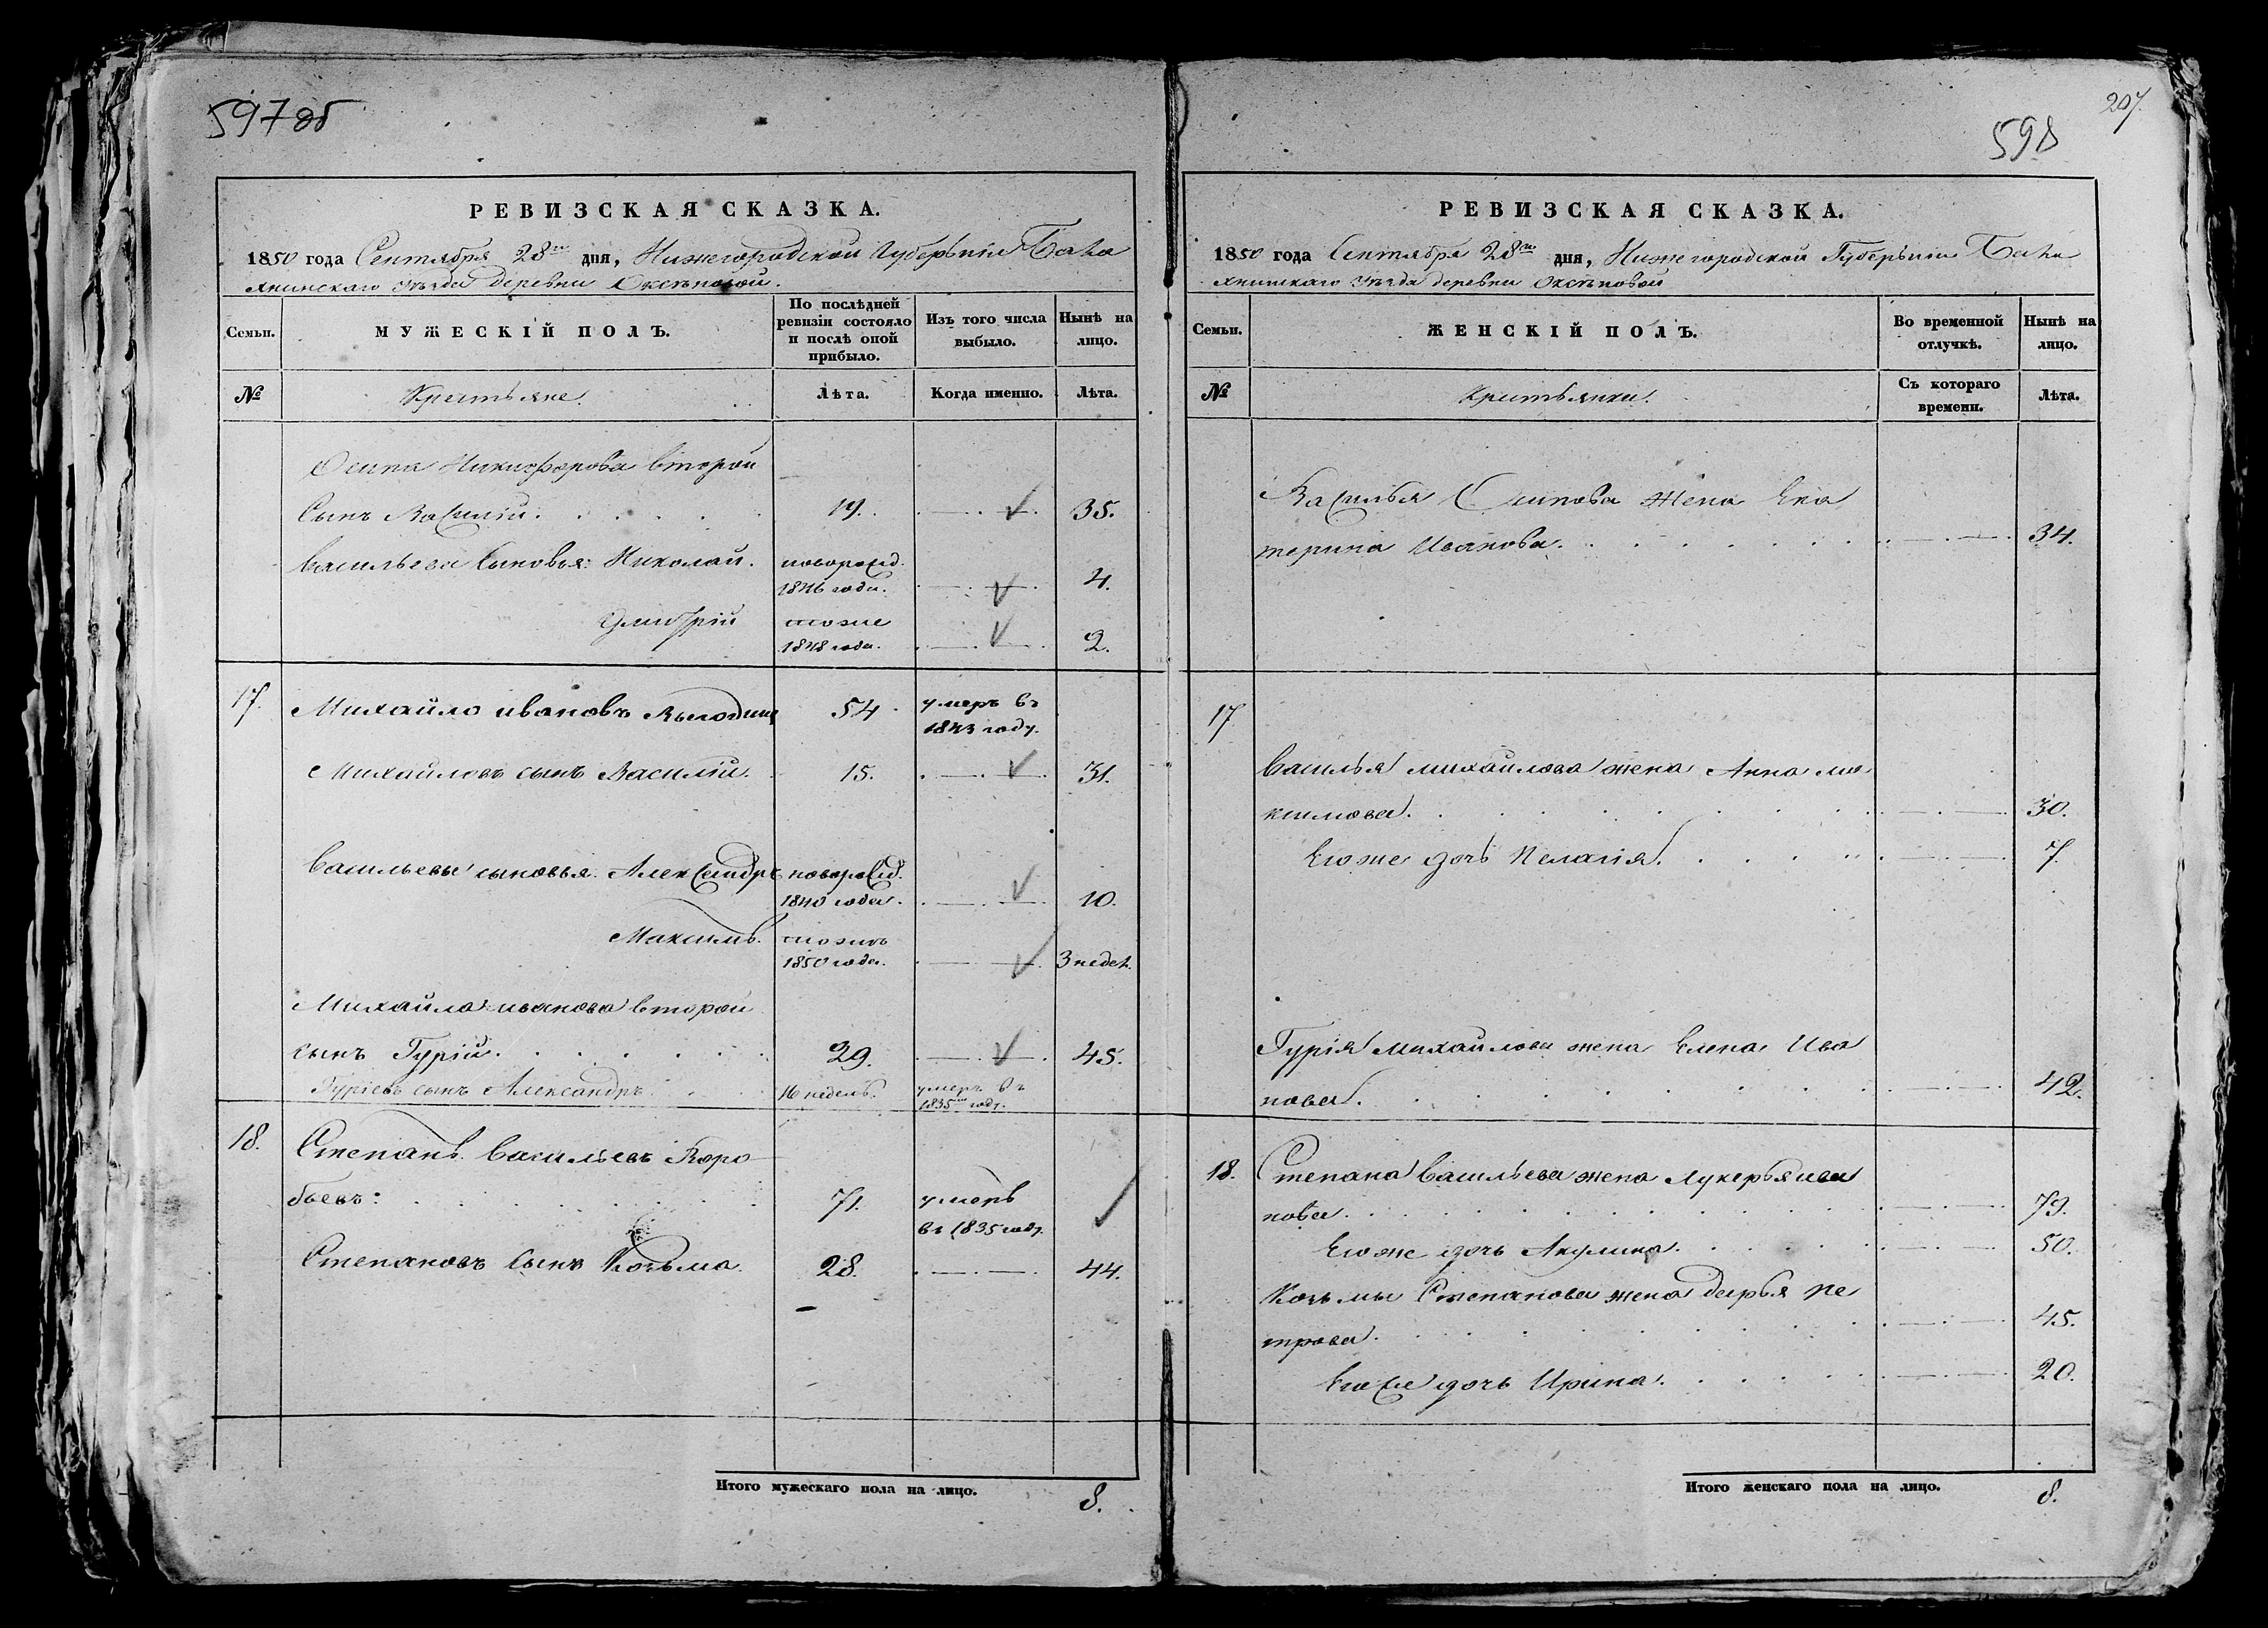 597об
РЕВИЗСКАЯ СКАЗКА.
1850 года Сентября 28го дня, Нижегородской Губернiи Бала
хнинскаго уѣзда деревни Оксѣновой.
Семьи.
МУЖЕСКIЙ ПОЛЪ.
По послѣдней
ревизiи состояло
и послѣ оной
прибыло.
Изъ того числа
выбыло.
Нынѣ на
лицо.
№
Крестьяне.
Лѣта.
Когда именно.
Лѣта.
Осипа Никифорова второй
Сынъ Василiй. 19. 35.
Васильева Сыновья: Николай. новорожд.
1846 года. 4.
Дмитрiй тоже
1848 года. 2.
17. Михайло ивановъ 54 умеръ въ
1843 году.
Михайловъ сынъ Василiй. 15. 31.
Васильевы сыновья: Александръ новорожд.
1840 года. 10.
Максимъ. тоже
1850 года. 3 недел.
Михайла иванова второй
сынъ Гурiй. 29. 45.
Гурiевъ сынъ Александръ. 16 недель. умеръ въ
1835м году.
18. Степанъ Васильевъ Воро
бьевъ: 71. умеръ
въ 1835 году.
Степановъ сынъ Козьма. 28. 44.
Итого мужескаго пола на лицо. 8.
207.
598
РЕВИЗСКАЯ СКАЗКА.
1850 года Сентября 28го дня, Нижегородской Губернiи Бала
хнинскаго уѣзда деревни Оксѣновой
Семьи.
ЖЕНСКIЙ ПОЛЪ.
Во временной
отлучкѣ.
Нынѣ на
лицо.
№
Крестьянки.
Съ котораго
времени.
Лѣта.
Василья Осипова жена Ека
терина Иванова. 34.
17
Василья михайлова жена Анна ма
ксимова. 30.
Его же дочь Пелагiя. 7.
Гурiя михайлова жена Елена Ива
нова. 42.
18. Степана Васильева жена Лукерья ива
нова. 79.
Его же дочь Акулина. 50.
Козьмы Степанова жена дарья пе
трова. 45.
Его же дочь Ирина. 20.
Итого женскаго пола на лицо. 8.